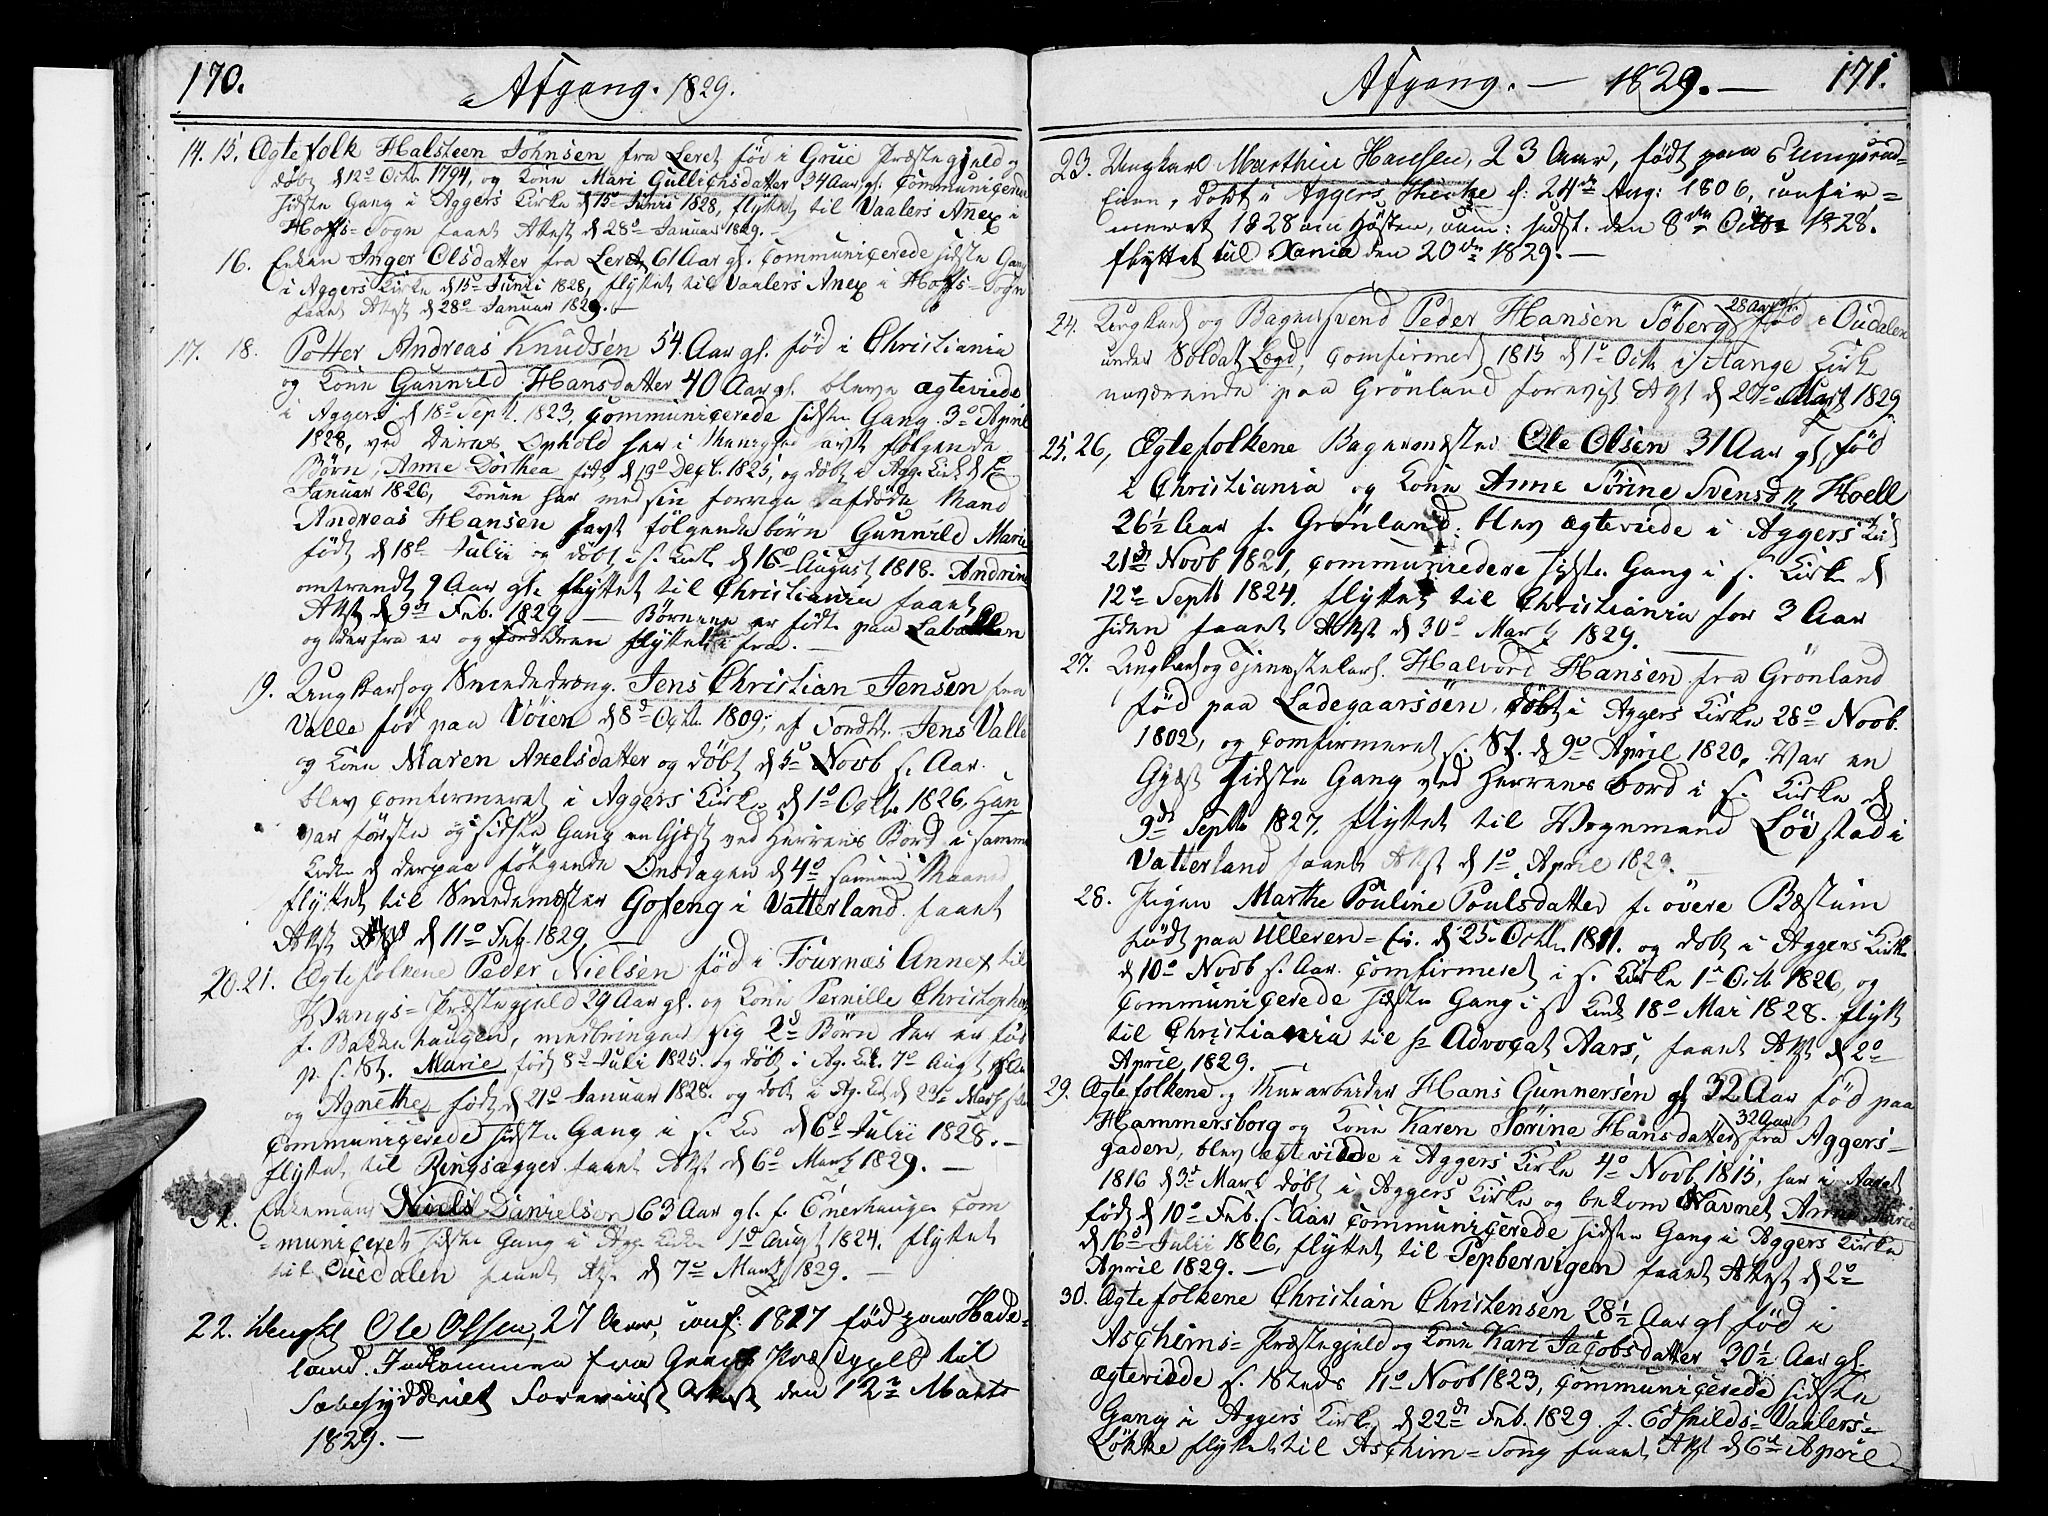 170.
Afgang. 1829.
14. 15. Ægtefolk Halsteen Johnsen fra Leret fød i Grue Præstegjeld og
døbt d 12o Octb. 1794, og Konn Mari Gullichsdatter 34 Aar gl. Communicerede
sidste Gang i Aggers Kirke d 15de Junii 1828, flyttet til Vaalers Anex i
Hoffs-Sogn faaet Attest d 28o Januar 1829.
16. Enken Inger Olsdatter fra Leret 61 Aar gl. Communicerede sidste Gang
i Aggers Kirke d 15o Junii 1828, flyttet til Vaalers Anex i Hoffs-Sogn
faaet Attst d 28o Januar 1829.
17. 18. Potter Andreas Knudsen 54 Aar gl. fød i Christiania
og Konn Gunnild Hansdatter 40 Aar gl. bleve ægteviede
i Aggers d 18o Sept. 1823, Communicerede sidste Gang 3o April
1828, ved deres Ophold her i Menighed avlt følgende
Børn, Anne Dorthea født d 19o Dept. 1825, og døbt i Agg. Kirk d 1o
Januar 1826, Konen har med sin forrige afdøde Mand
Andreas Hansen havt følgende børn Gunnild Marie
født d 18o Julii og døbt i s. Kirk d 16o August 1818. Andrine
omtrendt 9 Aar gl. flyttet til Christiania faaet
Attst d 9de Feb. 1829. — Børnene er født paa Laballen
og derfra er og Forældrene flyttet fra. —
19. Ungkarl og Smededreng Jens Christian Jensen fra
Valle fød paa Vöien d 8d Octb. 1809, af Jens Valle
og Konn Maren Axelsdatter og døbt d 5o Novb s. Aar.
blev comfirmeret i Aggers Kirke d 1o Octb. 1826, Han
var første og sidste Gang en Gjæst ved Herrens Bord i samme
Kirke d derpaa følgende Onsdagen d 4o samme Maaned
flyttet til Smedemester Gofeng i Vatterland. faaet
Attst d 11o Feb. 1829,
20. 21. Ægtefolkene Peder Nielsen fød i Fournæs Annex til
Vangs-Præstegjeld 29 Aar gl. og Konn Pernille Christophers
f. Bakkehaugen, medbringer sig 2d Börn der er fød
p. s. St. Marie født 8d Juli 1825. og døbt i Ag. Kirk. 7o Augt
og Agnethe født d 21o Januar 1828. og døbt i Ag. Kirk d 23de Marts
Communicerede sidste Gang i s. Kirk d 6d Julii 1828. —
flyttet til Ringsagger faaet Attst d 6o Marts 1829. —
Enkemand Niels Danielsen 63 Aar gl. f. Enerhaugen Com
=municeret sidste Gang i Agg. Kirke 1d Augt 1824. flyttet
til Ouedalen faaet Att. d 7o Marts 1829. —
22. Ungkl Ole Olsen, 27 Aar, conf: 1817 fød paa Hade-
land. Indkommen fra Grans Præstegjeld til
Sæbesyderiet Foreviist Attest den 12te Marts
1829. —
Afgang. — 1829. — 171.
23. Ungkarl Marthin Hansen, 23 Aar, født paa
Eiern, Døbt i Aggers Kirke d. 24de Aug: 1806, confir-
meret 1828 om Høsten, com: sidst. den 8de Octb. 1828.
flyttet til Xania den 20de 1829. —
24. Ungkarl og Bagersvend Peder Hansen Söberg 28 Aar gl. fød i Oudalen
under Soldat Lægd, Comfirmed 1815 d 1o Octb i Stange Kirk
nuværende paa Grönland forevist Attst d 27o Mart 1829
25. 26, Ægtefolkene Bagermester Ole Olsen 31 Aar gl, fød
i Christiania og Konn Anne Sörine Svensdtr Hoell
26½ Aar f. Grönland. blev ægteviede i Aggers Kirk
21de Novb 1821, Communicedere sidste Gang i s. Kirke d
12o Septb 1824. flyttet til Christiania for 3 Aar
siden faaet Attst d 30o Marts 1829.
27. Ungkarl og Tjenestekarl Halvord Hansen fra Grönland
fød paa Ladegaarsöen, döbt i Aggers Kirke 28o Novb.
1802, og comfirmeret s. St. d 9o April 1820. Var en
Gjæst sidste Gang ved Herrens bord i s. Kirke d
9de Septb 1827, flyttet til Vognmand Löfstad i
Vatterland faaet Attst d 1o April 1829.
28. Pigen Marthe Pouline Poulsdatter f. övere Bæstum
født paa Ulleren-Ei. d 25 Octb. 1811. og døbt i Aggers Kirke
d 10o Novb s. Aar. Comfirmeret i s. Kirke 1o Octb 1826, og
Communicerede sidste Gang i s. Kirk 18o Mai 1828. flytt
til Christiania til Advocat Aars, faaet Attst d 2o
April 1829.
29. Ægtefolkene og Murarbeider Hans Gunnersen gl 32 Aar fød paa
Hammersborg og Konn Karen Sörine Hansdatter 32 Aar fra Aggers-
gaden, blev ægteviede i Aggers Kirke 4o Novb. 1815, har i Aaret
1816 d 3d Marts döbt i Aggers Kirke og bekom Navnet Anne Marie
født d 10o Feb. s. Aar Communicerede sidste Gang i Aggers Kirke
d 16o Julii 1826, flyttet til Pepbervigen faaet Attst d 2o
April 1829. —
30. Ægtefolkene Christian Christensen 28½ Aar gl fød i
Aschims-Præstegjeld og Konn Kari Jacobsdatter 30½ Aar gl.
ægteviede s. Steds 11o Novb 1823, Communicerede sidste
Gang i Aggers Kirke d 22de Feb. 1829. f. Edsvilds-Vaalers-
Løkke flyttet til Aschim-Song faaet Attst d 6te April